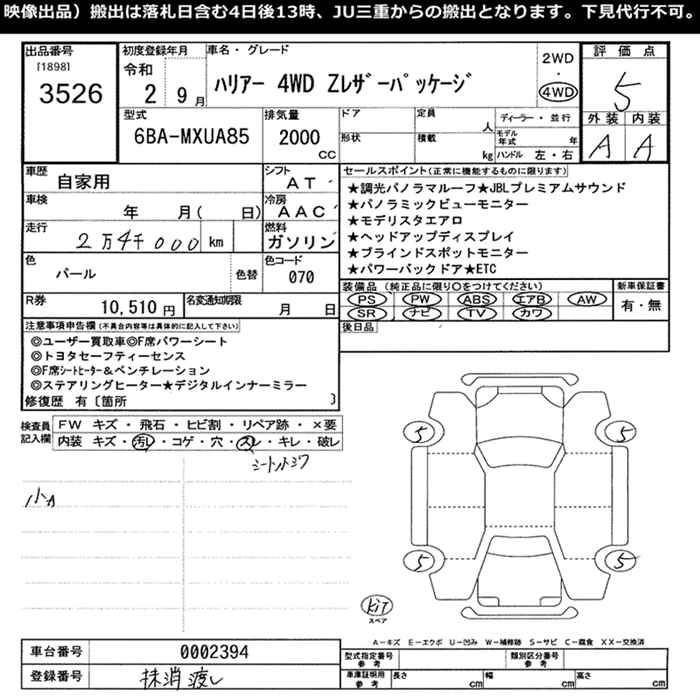 映像出品）搬出は落札日含む4日後13時、JU三重からの搬出となります。下見代行不可。
出品番号
[1898]
3526
初度登録年月
令和
2 9月
車名・グレード
ハリアー 4WD Zレザーパッケージ
2WD
・
4WD
評価点
5
外装 内装
A A
型式
6BA-MXUA85
排気量
2000
CC
ドア
形状
定員
人
積載
kg
ディーラー・並行
モデル年式 年
ハンドル 左・右
車歴
自家用
シフト
AT
車検
年 月( 日)
冷房
AAC
走行
2万4千000 km
燃料
ガソリン
色
パール
色替
色コード
070
R券
10,510円
名変通知期限
月 日
セールスポイント(正常に機能するものに限ります)
★調光パノラマルーフ★JBLプレミアムサウンド
★パノラミックビューモニター
★モデリスタエアロ
★ヘッドアップディスプレイ
★ブラインドスポットモニター
★パワーバックドア★ETC
装備品(純正品に限り○をつけてください)
PS PW ABS エアB AW
SR ナビ TV カワ
新車保証書
有・無
後日品
注意事項申告欄(不具合内容等は具体的に記入して下さい)
◎ユーザー買取車◎F席パワーシート
◎トヨタセーフティーセンス
◎F席シートヒーター＆ベンチレーション
◎ステアリングヒーター★デジタルインナーミラー
修復歴 有〔箇所 〕
検査員記入欄
FW キズ・飛石・ヒビ割・リペア跡・×要
内装 キズ・汚レ・コゲ・穴・スレ・キレ・破レ
小A
5
5
5
5
KIT
スペア
A－キズ E－エクボ U－凹み W－補修跡 S－サビ C－腐食 XX－交換済
車台番号
0002394
登録番号
抹消渡し
型式指定番号
参考
類別区分番号
参考
車庫証明用
参考
長さ cm
幅 cm
高さ cm